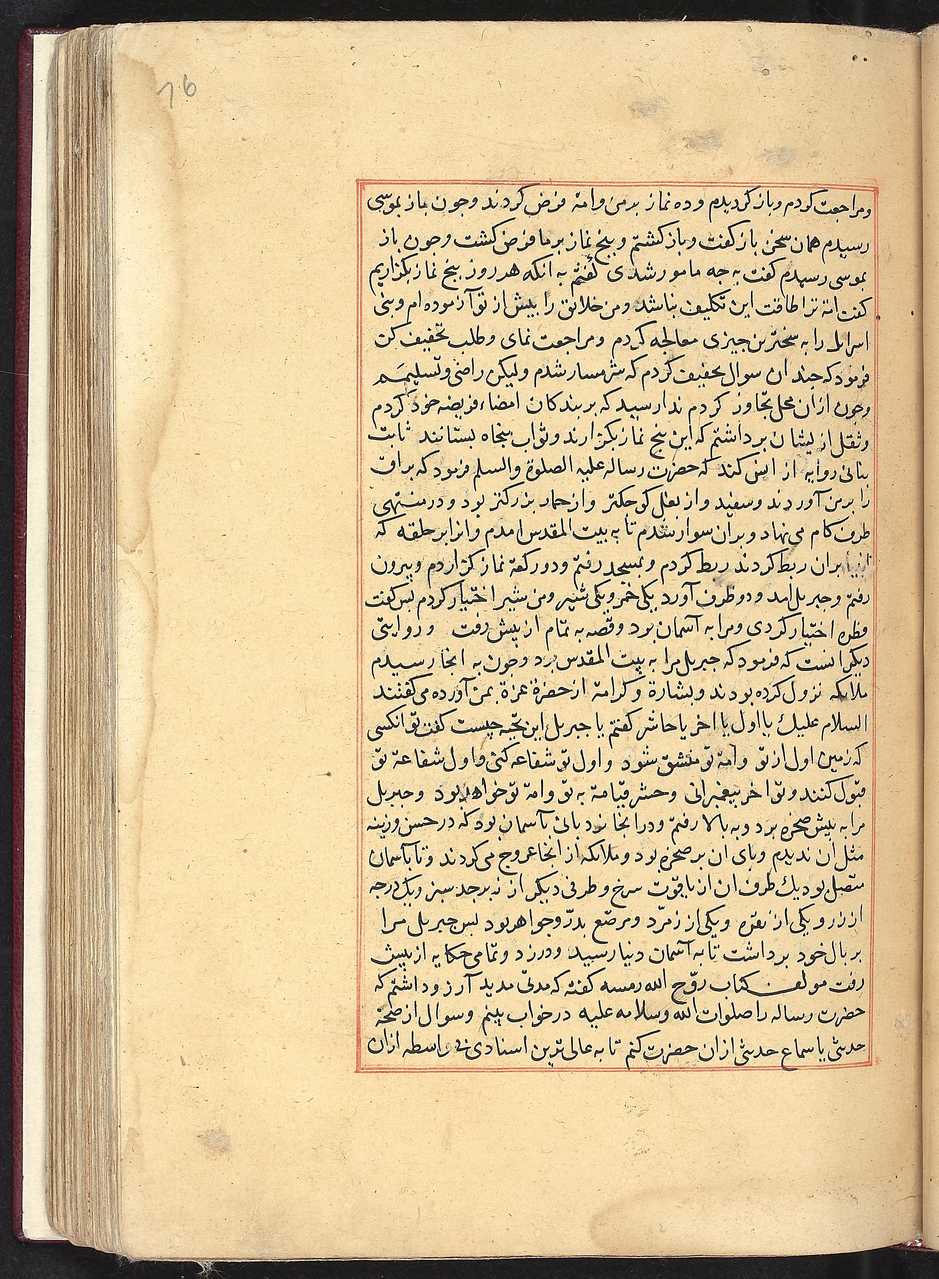 76
ومراجعت کردم وباز کردیدم وده نماز بر من وامة فرض کردند وجون باز بموسی
رسیدم همان سخن باز کفت وباز کشتم وپنج نماز برما فرض کشت وجون باز
بموسی رسیدم کفت به جه مامور شدی کفتم به انکه هر روز پنج نماز بکزاریم
کفت امة ترا طاقت این تکلیف نباشد ومن خلائق را پیش از تو آزموده ام وبنی
اسرائل را به سختترین جیزی معالجه کردم ومراجعت نمای وطلب تخفیف کن
فرمود که جندان سوال تخفیف کردم که شرمسار شدم ولیکن راضی وتسلیمم
وجون ازان محل تجاوز کردم ندا رسید که بر بندکان امضاء فریضه خود کردم
وثقل ازیشان برداشتم که این پنج نماز بکزارند وثواب پنجاه بستانند ثابت
بنانی روایه از انس کند که حضرت رساله علیه الصلوة والسلم فرمود که براق
را بر من آوردند وسفید واز بغل کوجکتر واز حمار بزرکتر بود ودر منتهی
طرف کام می نهاد وبران سوار شدم تا به بیت المقدس امدم وانرا بر حلقه که
انبیا بران ربط کردند ربط کردم وبمسجد رفتم ودو رکعة نماز کزاردم وبیرون
رفتم وجبریل امد ودو ظرف آورد یکی خمر ویکی شیر ومن شیر اختیار کردم پس کفت
فطره اختیار کردی ومرا به آسمان برد وقصه به تمام از پیش رفت وروایتی
دیکر انست که فرمود که جبریل مرا به بیت المقدس برد وجون به انجا رسیدم
ملائکه نزول کرده بودند وبشارة وکرامة از حضرة عزة بمن آورده می کفتند
السلام علیك یا اول یا اخر یا حاشر کفتم یا جبریل این تحیه چیست کفت تو انکسی
که زمین اول از تو وامة تو منشق شود واول تو شفاعه کنی واول شفاعة تو
قبول کنند وتو اخر پیغمبرانی وحشر قیامة به تو وامة تو خواهد بود وجبریل
مرا به پیش صخره برد وبه بالا رفتم ودر انجا نردبانی تا آسمان بود که در حسن وزینه
مثل ان ندیدم وپای ان بر صخره بود وملائکه از انجا عروج می کردند وتا بآسمان
متصل بود یك طرف ان از یاقوت سرخ وطرفی دیکر از زبرجد سبز ویك درجه
از زر ویکی از نقره ویکی از زمرد ومرصّع بدرّ وجواهر بود پس جبریل مرا
بر بال خود برداشت تا به آسمان دنیا رسید ودر زد وتمامی حکایه از پیش
رفت مولف کتاب روّح الله رمسه کفته که مدتی مدید آرزو داشتم که
حضرت رساله را صلوات الله وسلامه علیه در خواب بینم وسوال از صحة
حدیثی یا سماع حدیثی ازان حضرت کنم تا به عالی ترین اسنادی بی واسطه ازان